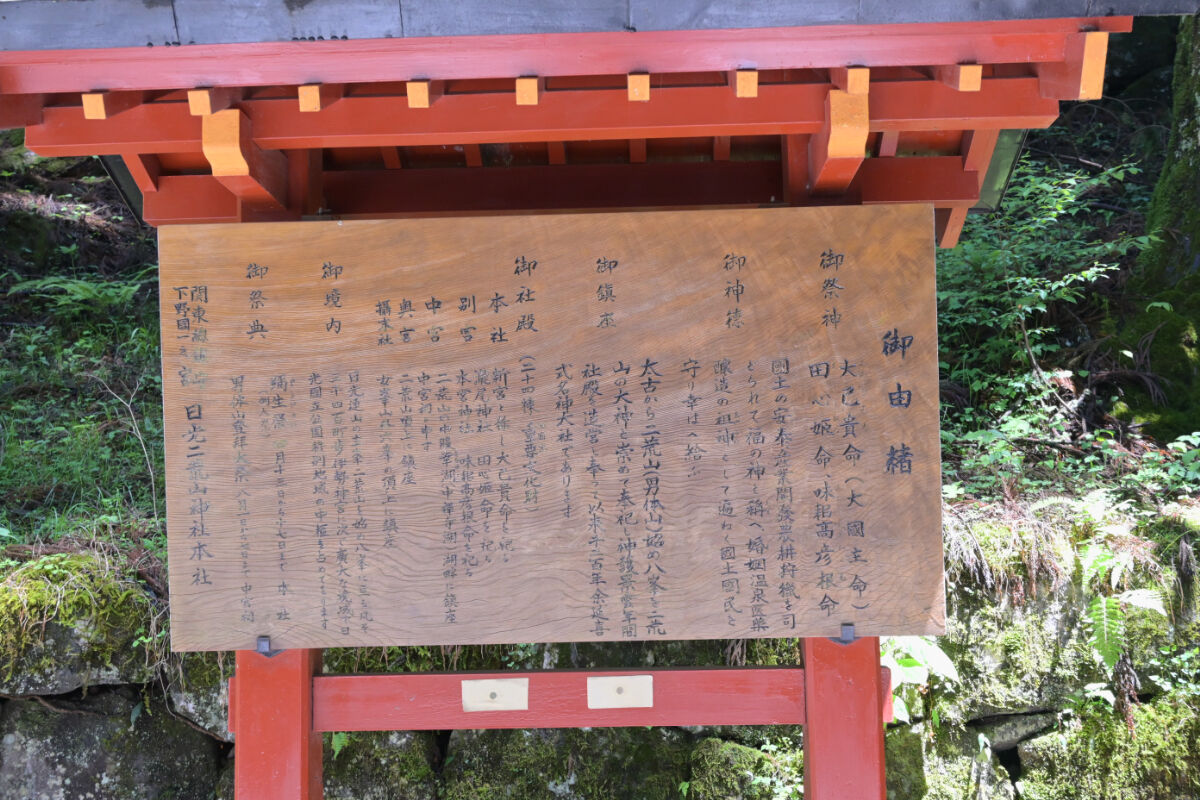 御由緒
御祭神
大己貴命(大國主命)
田心姫命 味耜高彦根命
御神徳
國土の安泰と産業開發農耕狩機を司
とられて福の神と稱へ婚姻温泉医薬
醸造の祖神として遍ねく國土國民を
守り幸はへ給ふ
御鎮座
太古から二荒山(男体山)始め八峯を二荒
山の大神と崇めて奉祀し神護景雲年間
社殿を造営し奉って以来千二百年余延喜
式名神大社であります
御社殿
(二十四棟 重要文化財)
本社
新宮と称し大己貴命を祀る
別宮
瀧尾神社 田心姫命を祀る
本宮神社 味耜高彦根命を祀る
中宮
二荒山中腹中禅寺湖畔に鎮座
中宮祠と申す
奥宮
二荒山頂上に鎮座
攝末社
女峯山外六峯の頂上に鎮座
御境内
日光連山の主峯二荒山を始め八峯に亘る
三千四百町歩の伊勢神宮に次ぐ廣大な境域で日
光國立公園特別地域の中枢を占めてゐます
御祭典
彌生祭 四月十三日から十七日まで 本社
男体山登拝大祭 八月一日から 中宮祠
下野國一之宮
日光二荒山神社本社